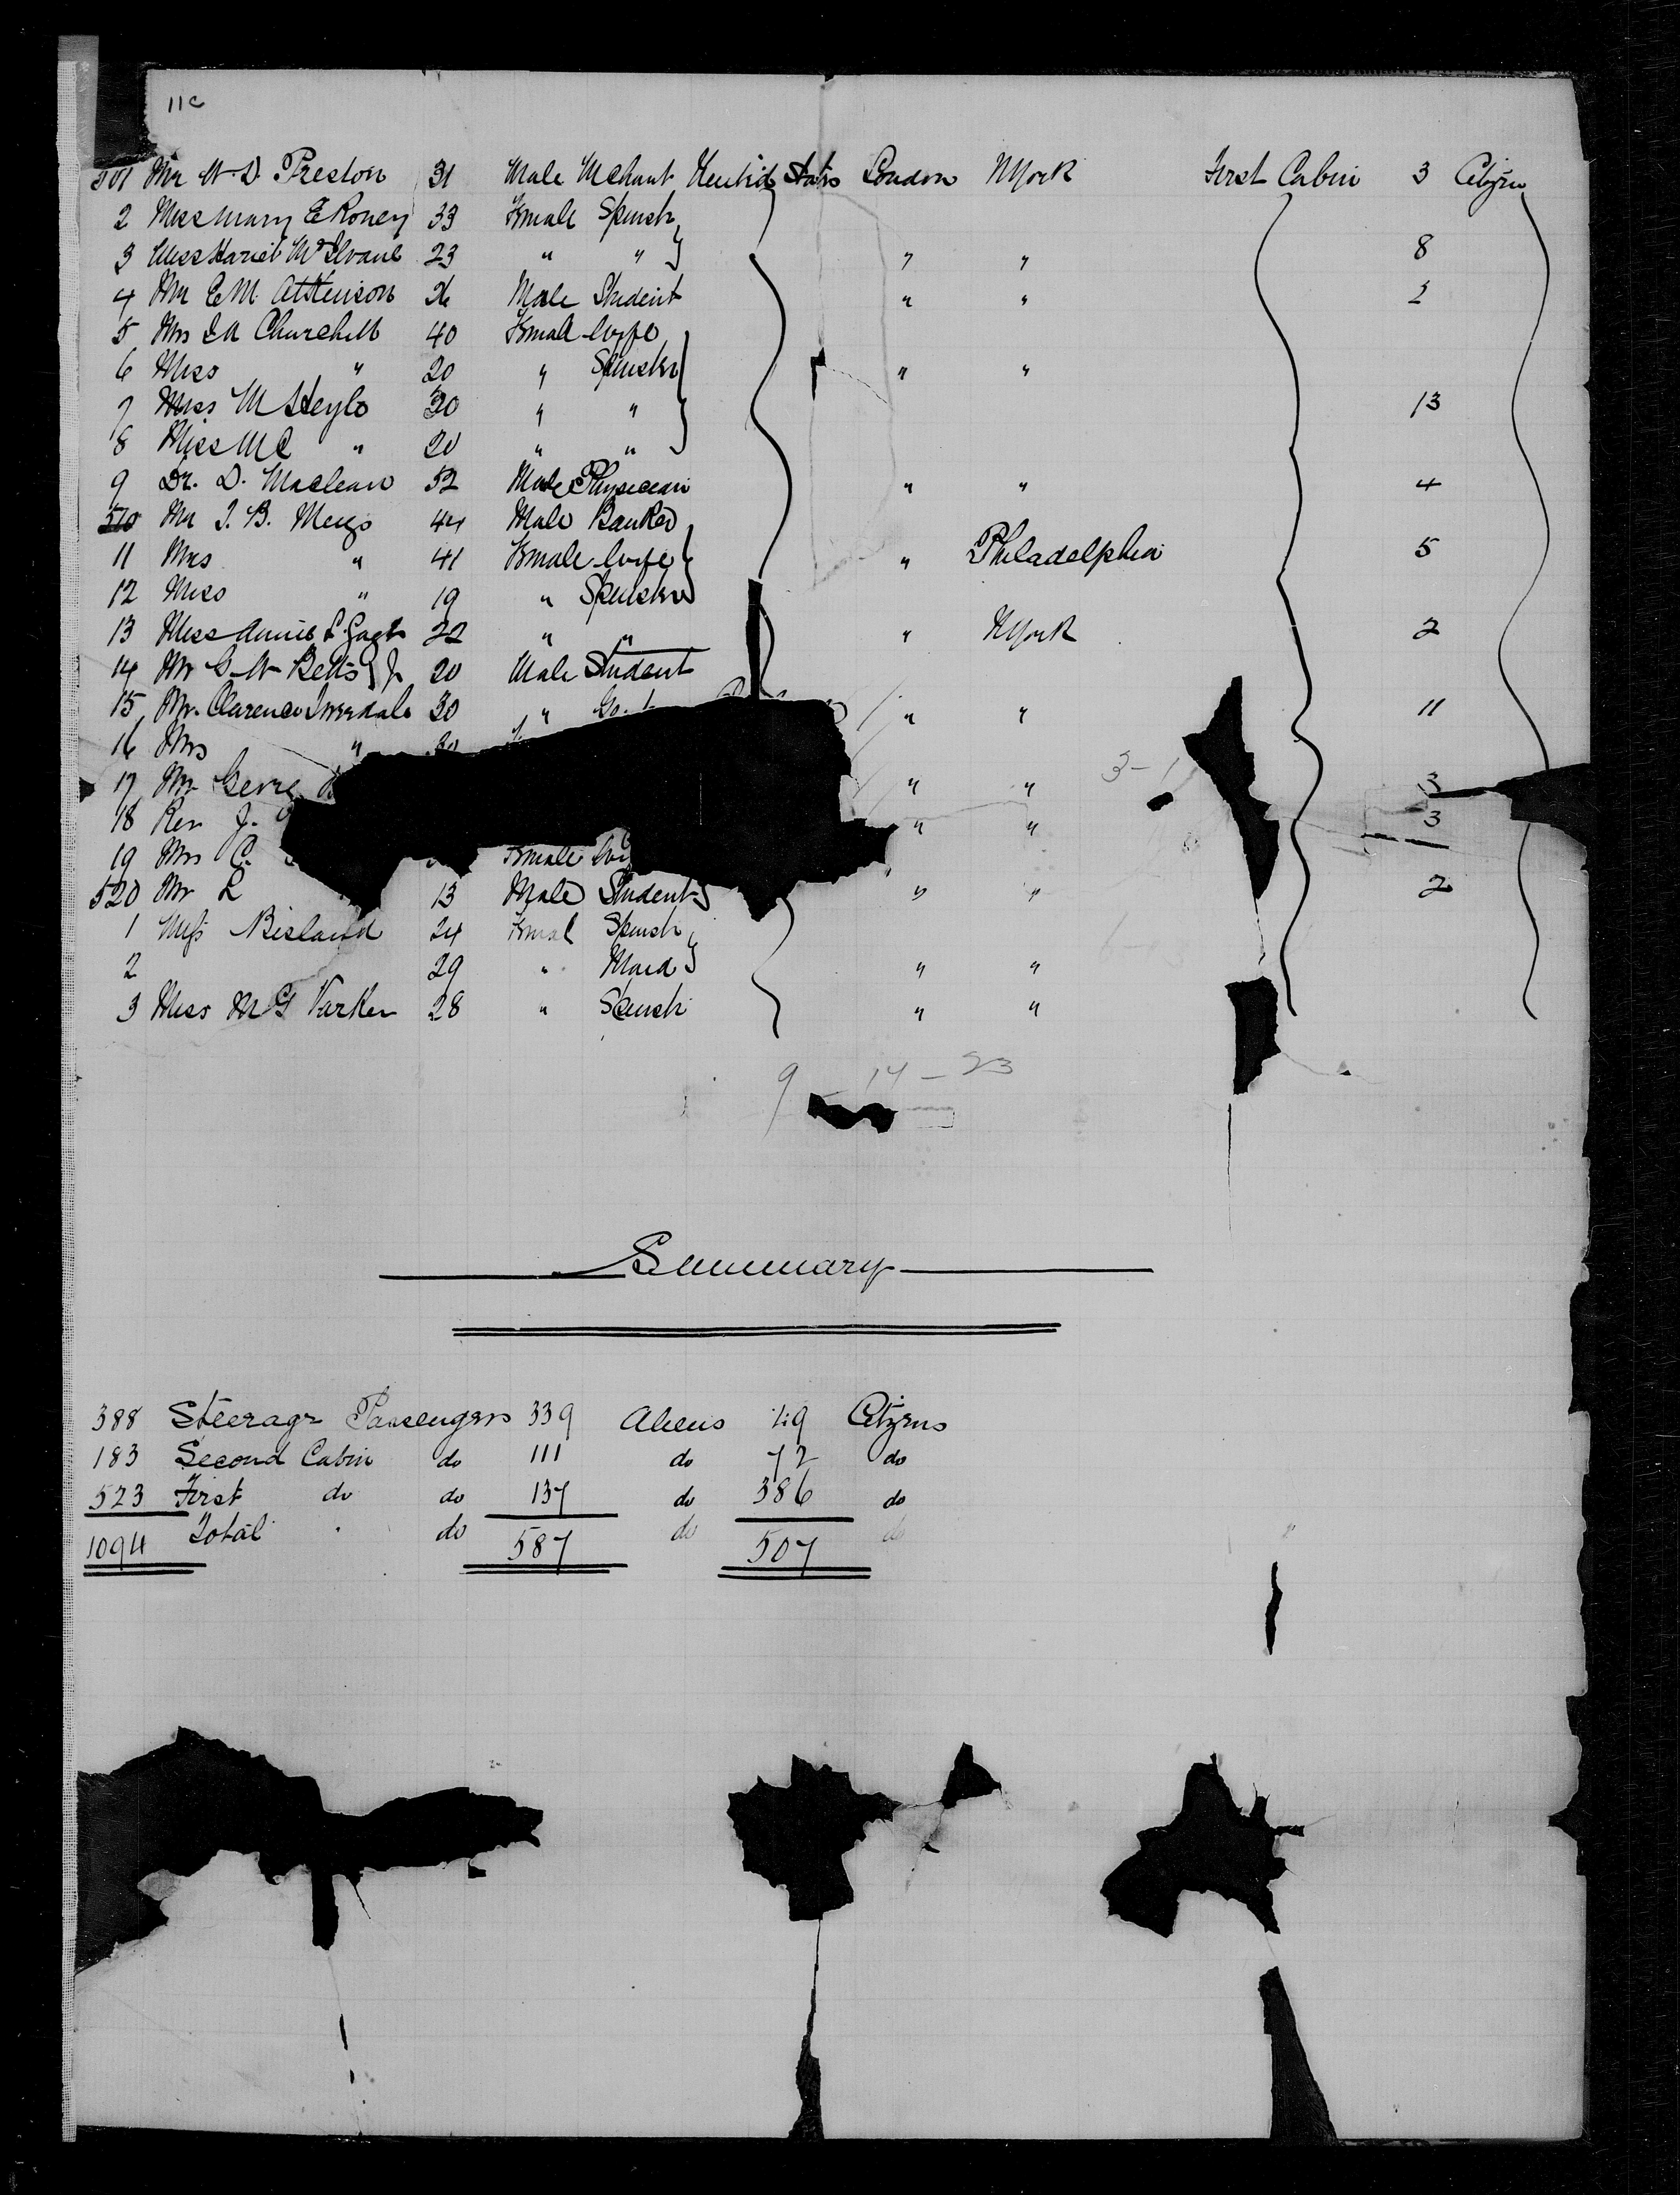 11c
501 Mr W. D. Preston 31 Male Mchant United States London NYork First Cabin 3 Citizen
2 Miss Mary E Roney 33 Fmale Spinstr
3 Miss Hariet McIlvane 23 " " " " 8
4 Mr E M Attkinson 26 Male Student " " 2
5 Mrs Churchill 40 Fmale Wife
6 Miss " 20 " Spinstr " "
7 Miss M Heylo 20 " " 13
8 Miss M C " 20 " "
9 Dr. D. Maclean 52 Male Physician " " 4
510 Mr J. B. Meigs 44 Male Banker
11 Mrs " 41 Fmale Wife " Philadelphia 5
12 Miss " 19 " Spinstr
13 Miss Annie L. 22 " " " NYork 2
14 Mr G W Betts Jr 20 Male Student
15 Mr. Clarence 30 " " " 11
16 Mrs "
17 Mr " " 3-1 3
18 Rev J. " " 3
19 Mrs C. Fmale
520 Mr L 13 Male Student " " 2
1 Miss Bisland 24 Fmal Spinstr
2 29 " Maid " "
3 Miss M G Parker 28 " Spinstr " "
9 - 14 - 23
Summary
388 Steerage Passengers 339 Aliens 49 Citizens
183 Second Cabin do 111 do 72 do
523 First do do 137 do 386 do
1094 Total " do 587 do 507 do